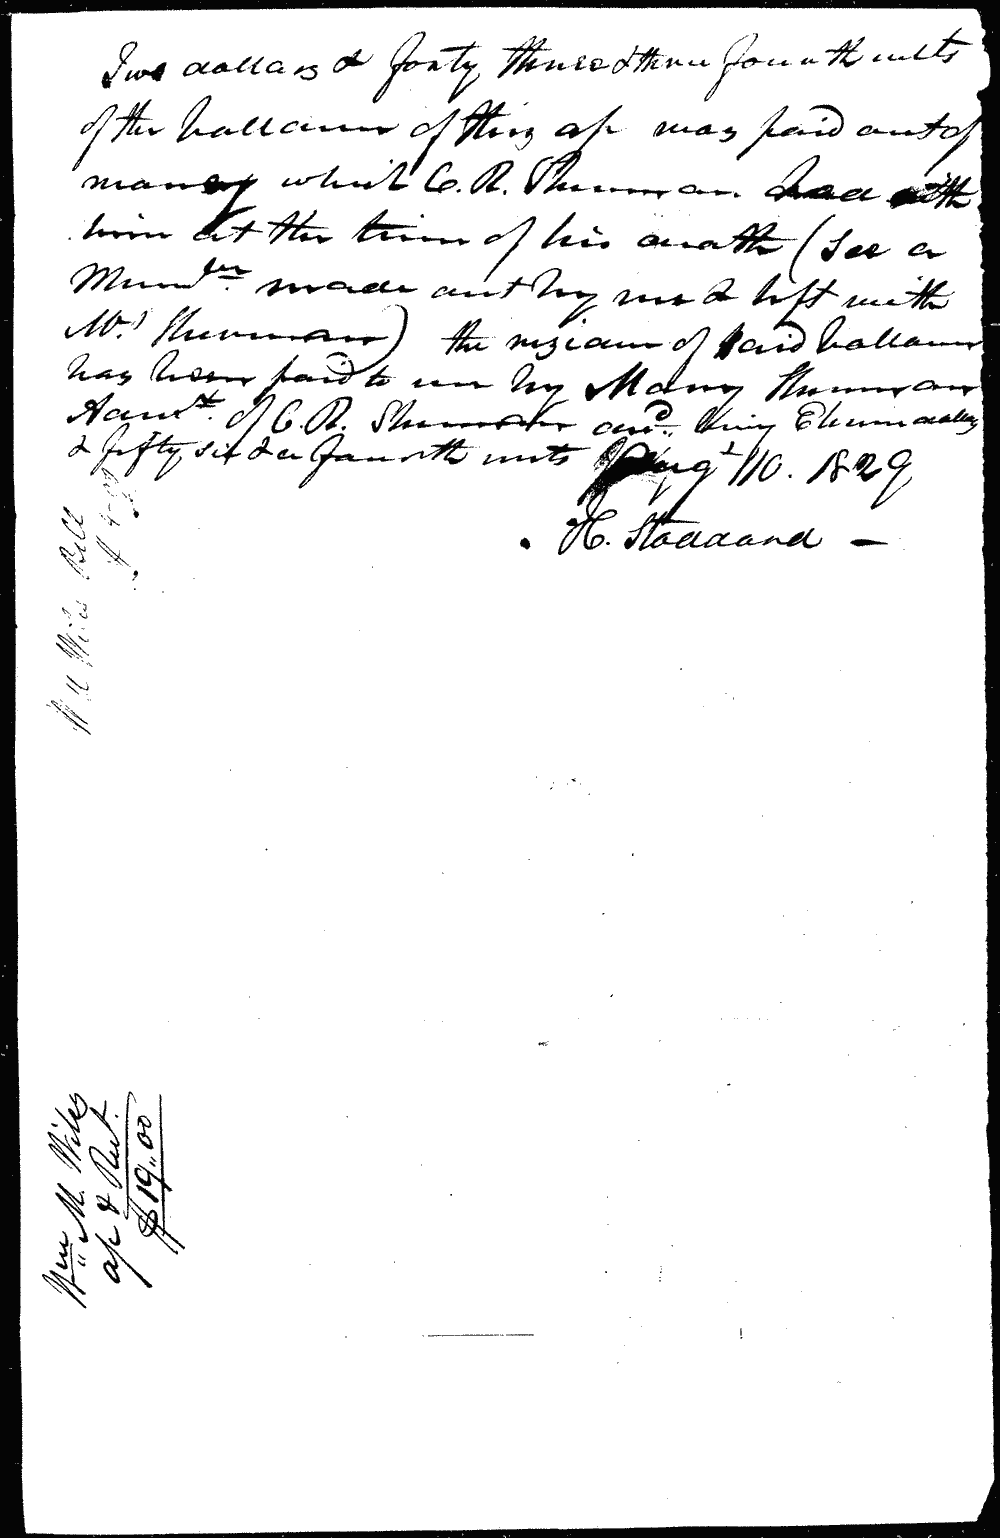 Two dollars & forty three & three fourth cents
of the ballance of this ap was paid out of
money which C. R. Sherman had with
him at the time of his death (See a
Memdm made out by me & left with
Mrs Sherman) the residue of said ballance
has been paid to me by Mary Sherman
Admx. of C. R. Sherman decd. being Eleven dollars
& fifty six & a fourth cents Augt 10. 1829
H. Stoddard —
Wiles Bill
Wm M. Wiles
ap & Rect.
$ 19.00